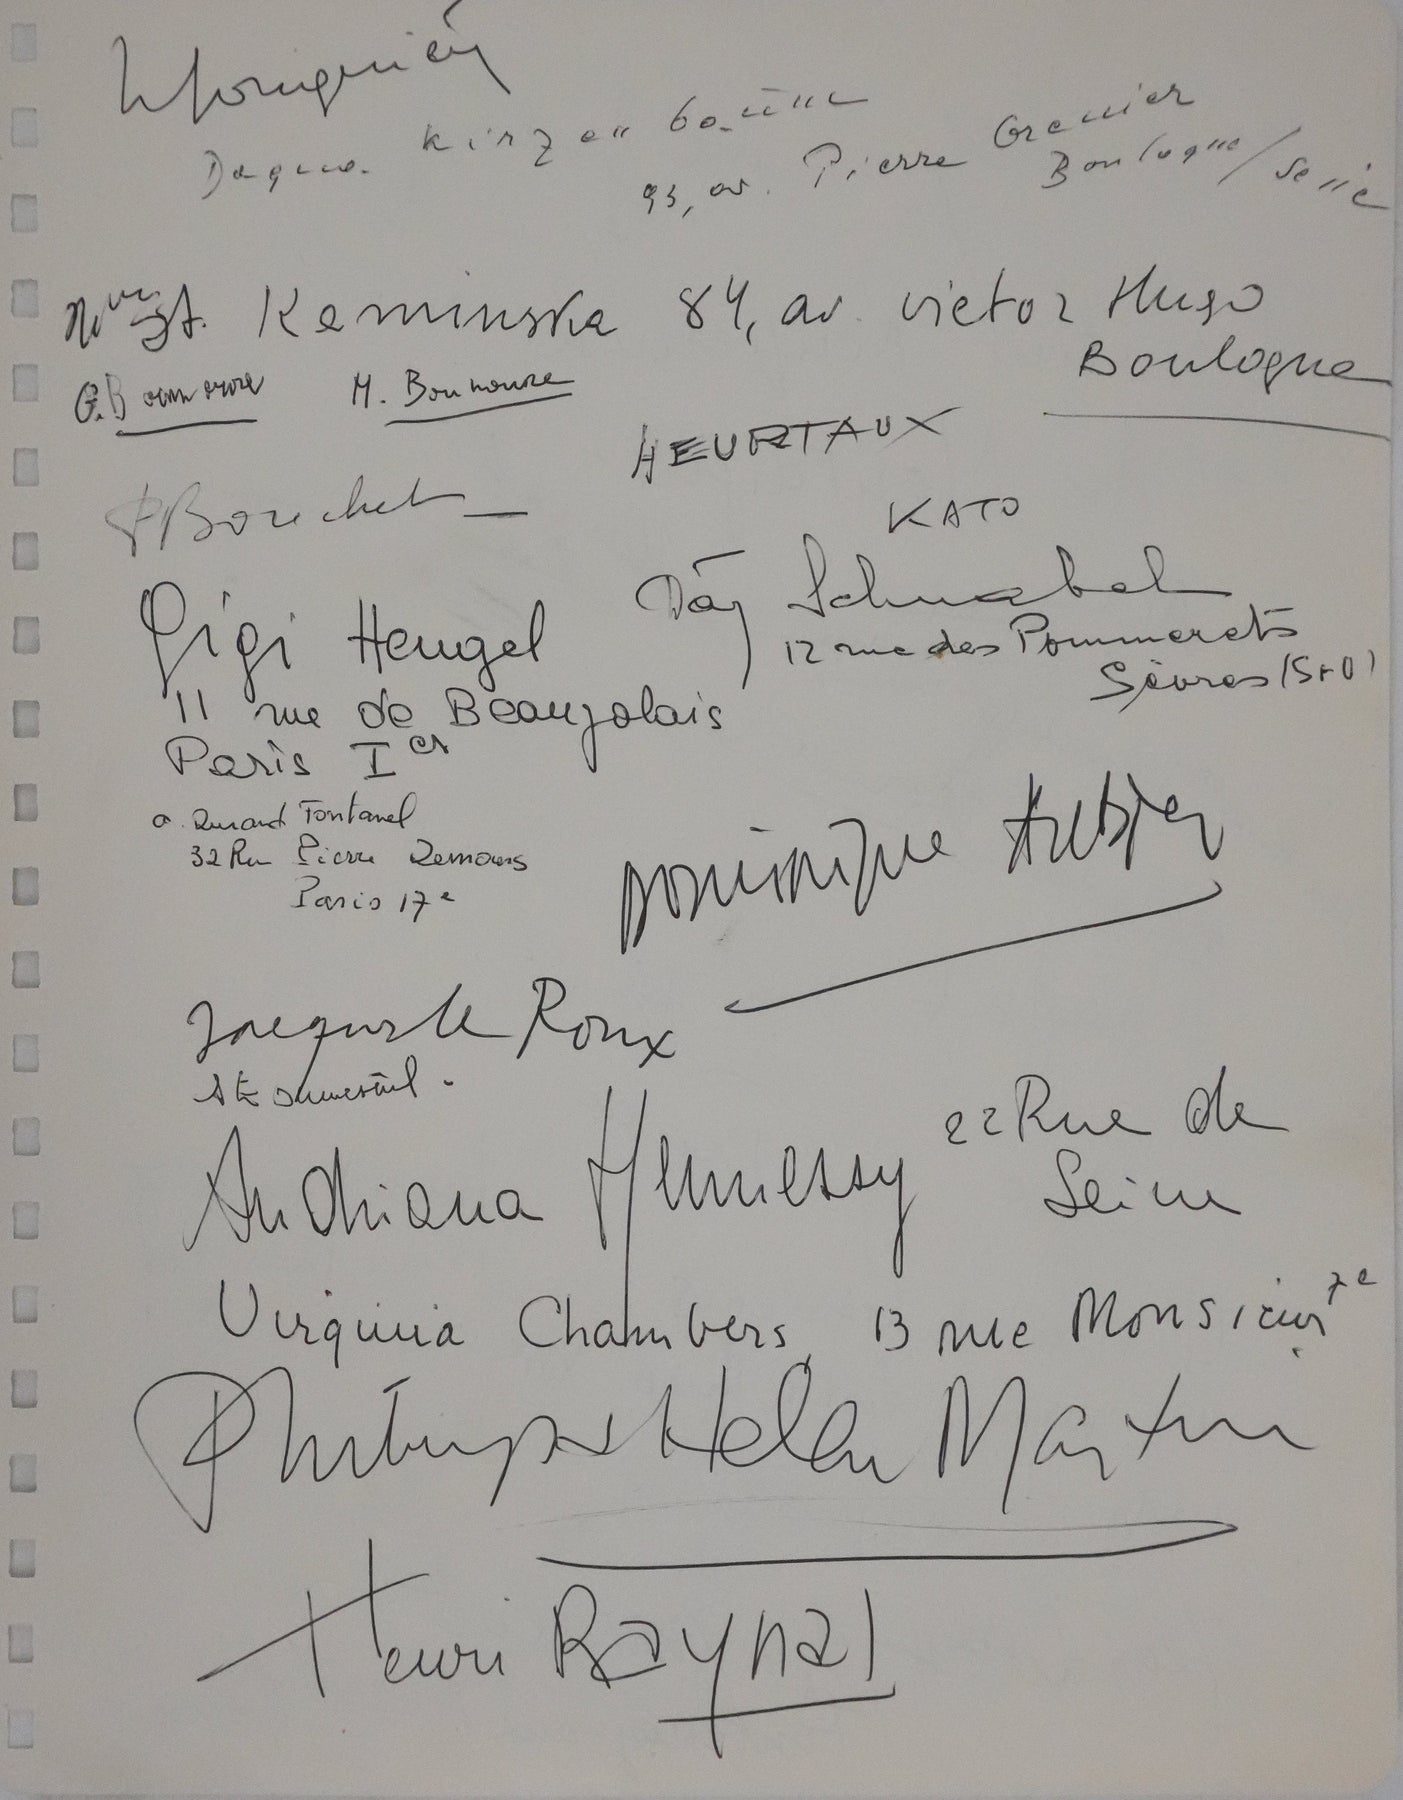 Dagma. Kirzenbaüm
93, av. Pierre Grenier
Boulogne/Seine
Kaminska 84, av. victor Hugo
Boulogne
G. Bounoure M. Bounoure
HEURTAUX
Bouchet
KATO
Gigi Heugel
11 rue de Beaujolais
Paris Ier
Schnabel
12 rue des Pommerets
Sèvres (S+O)
Fontanel
32 Rue Pierre Demours
Paris 17e
Dominique Aubier
Roux
Andriana Hennessy 22 Rue de
Seine
Virginia Chambers, 13 rue Monsieur 7e
Helen Martin
Henri Raynal